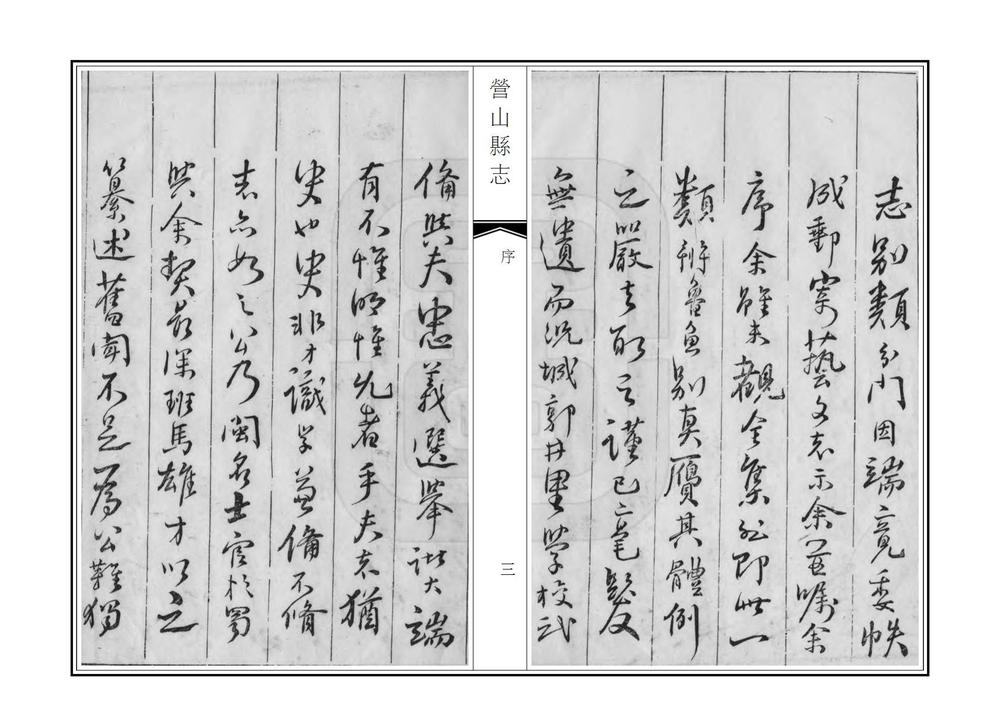 志別類分門因端竟委帙
成郵寄藝文志示余並囑余
序余雖未覩全集然即此一
類辨魯魚別真贋其體例
之嚴去取之謹已毫髮
無遺而況城郭井里學校武
營山縣志
序
三
備與夫忠義選舉諸大端
有不惟明惟允者乎夫志猶
史也史非才識學兼備不修
志亦如之公乃閩名士官於蜀
與余契最深班馬雄才以之
纂述舊聞不足為公難獨